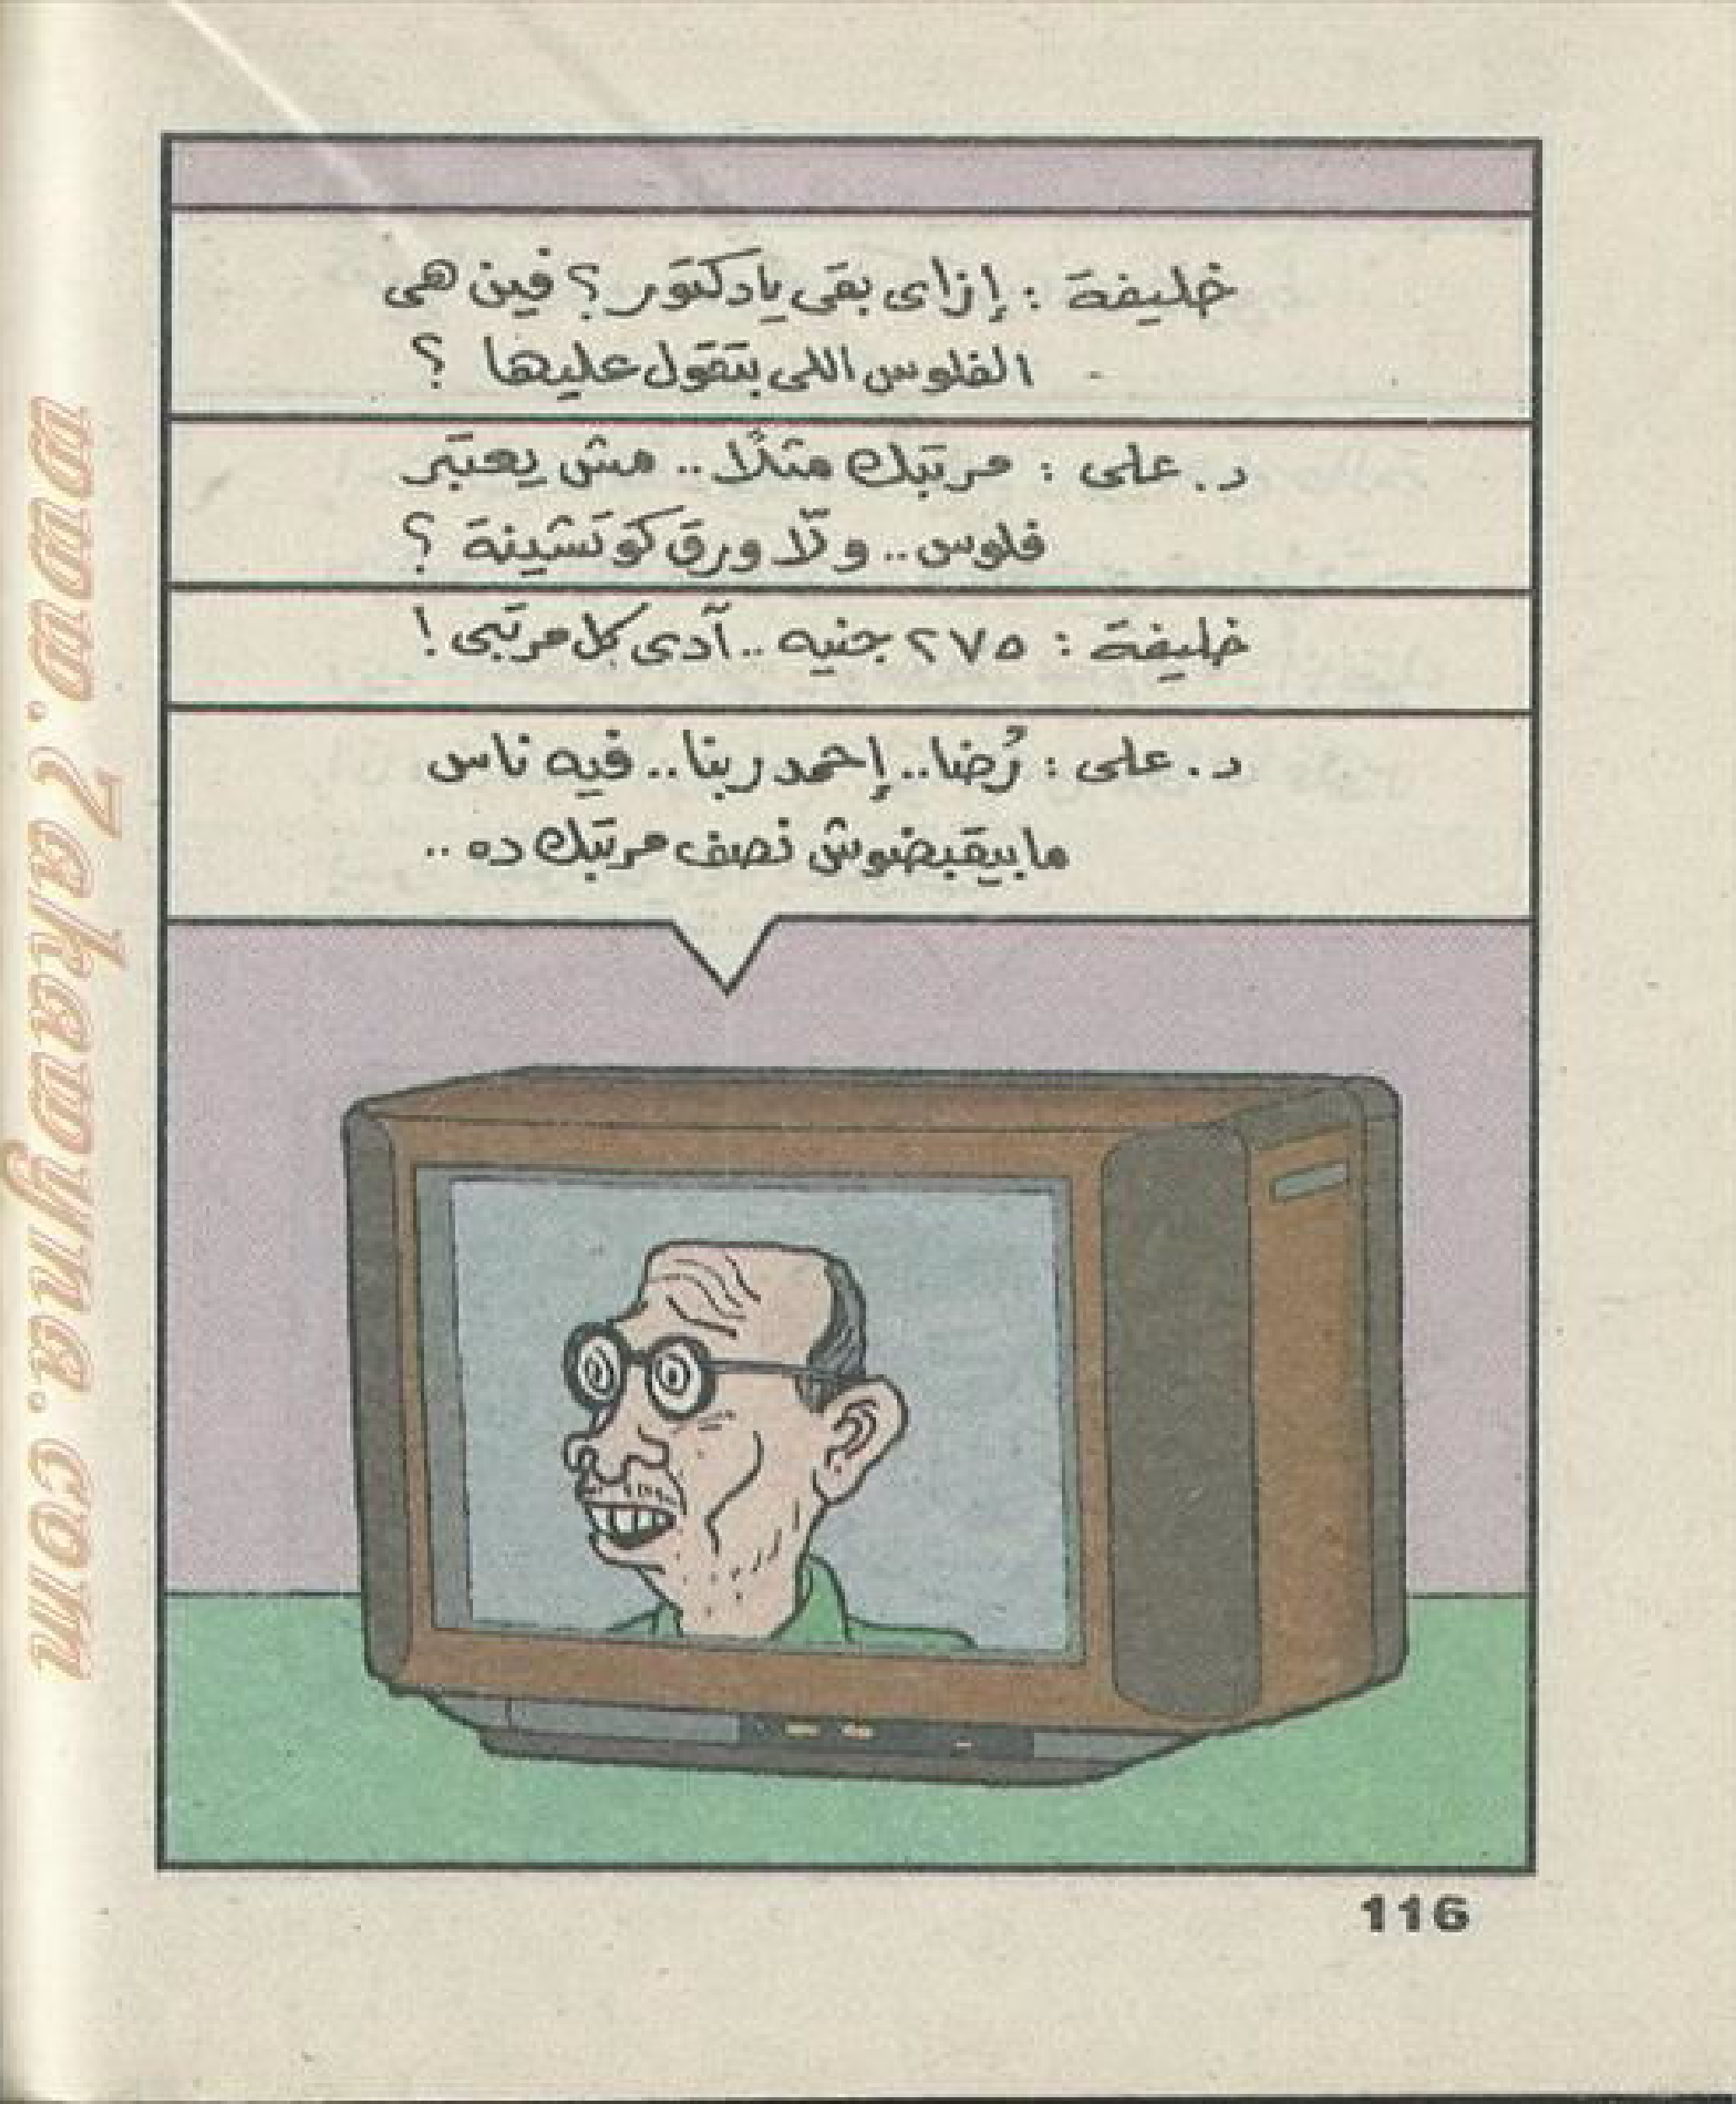 خليفة : إزاى بقى يادكتور؟ فين هى
الفلوس اللى بتقول عليها ؟
د. على : مرتبك مثلًا .. مش يعتبر
فلوس .. ولّا ورق كوتشينة ؟
خليفة : ٢٧٥ جنيه .. آدى كل مرتبى !
د. على : رُضا .. إحمد ربنا .. فيه ناس
مابيقبضوش نصف مرتبك ده ..
116
www.7elmaynna.com